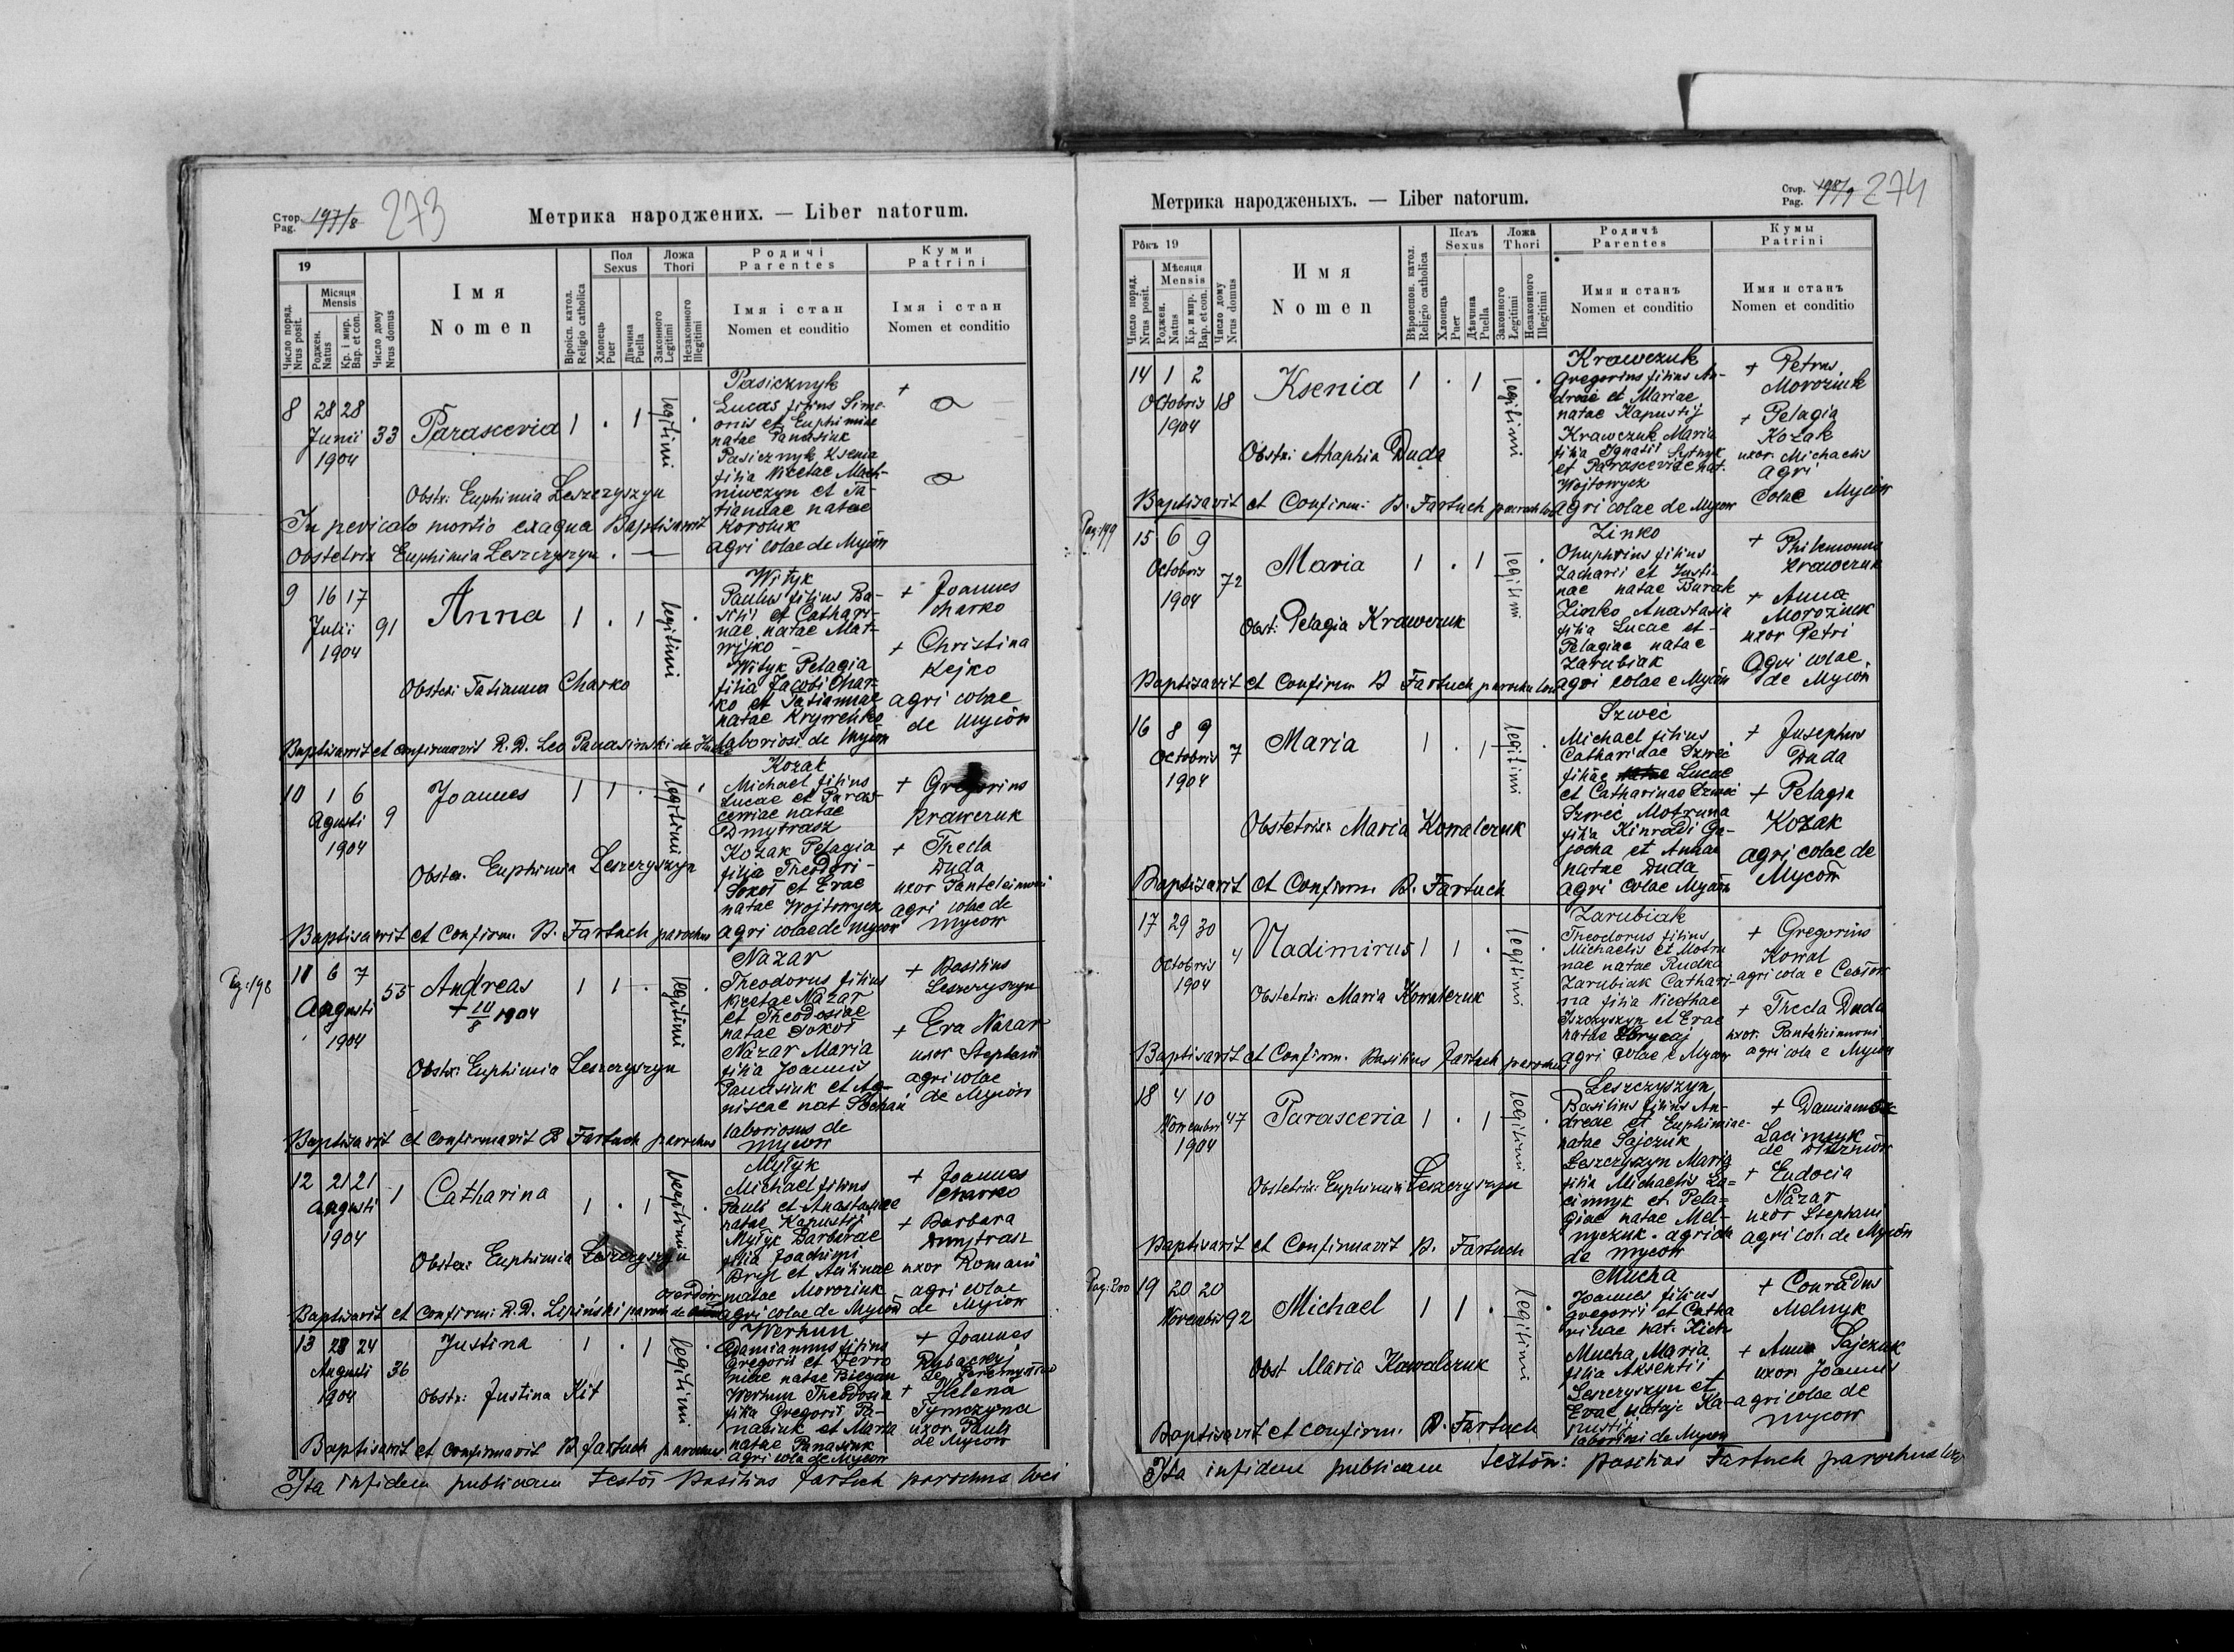 Стор. Pag. 197/8 273
Метрика народжених. — Liber natorum.
19
Число поряд. Nrus posit.
Місяця Mensis
Роджен. Natus
Кр. і мир. Bap. et con.
Число дому Nrus domus
Імя Nomen
Віроісп. катол. Religio catholica
Пол Sexus
Хлопець Puer
Дівчина Puella
Ложа Thori
Законного Legitimi
Незаконного Illegitimi
Родичі Parentes
Імя і стан Nomen et conditio
Куми Patrini
Імя і стан Nomen et conditio
8 28 28 Junii 1904 33 Parascevia 1 . 1 legitimi .
Pasicznyk
Lucas filius Sime-
onis et Euphimiae
natae Panasiuk
Pasicznyk Ksenia
filia Nicetae Mach-
niwczyn et Ta-
tiannae natae
Koroluk
agricolae de Myców
Obstx: Euphimia Leszczyszyn
In periculo mortio exaqua Baptisavit
Obstetrix Euphimia Leszczyszyn . —
9 16 17 Julii 1904 91 Anna 1 . 1 legitimi .
Wityk
Paulus filius Ba-
silii et Cathari-
nae natae Mat-
wijko -
Wityk Pelagia
filia Jacobi Char-
ko et Tatiannae
natae Krywenko
laboriosi de Myców
+ Joannes
Charko
+ Christina
Kejko
agricolae
de Myców
Obstex: Tatianna Charko
Baptisavit et confirmavit R. D. Leo Panasinski de
10 1 6 Agusti 1904 9 Joannes 1 1 . legitimi .
Kozak
Michael filius
Lucae et Paras-
ceviae natae
Dmytrasz
Kozak Pelagia
filia Theodori-
Sokoł et Evae
natae Wojtowycz
agricolae de Mycow
+ Gregorius
Krawczuk
+ Thecla
Duda
uxor Panteleimoni
agricolae de
Mycow
Obstex. Euphimia Leszczyszyn
Baptisavit et Confirm. B. Fartuch parochus
Pag: 198
11 6 7 Augusti 1904 55 Andreas 1 1 . legitimi .
+ 10/8 1904
Nazar
Theodorus filius
Nicetae Nazar
et Theodosiae
natae Sokoł
Nazar Maria
filia Joannis
Panasiuk et Ag-
niscae nat Sochan
laboriosus de
Mycow
+ Basilius
Leszczyszyn
+ Eva Nazar
uxor Stephani
agricolae
de Myców
Obstx: Euphimia Leszczyszyn
Baptisavit et Confirmavit B Fartuch parochus
12 21 21 Augusti 1904 1 Catharina 1 . 1 legitimi .
Mytyk
Michael filius
Pauli et Anastasiae
natae Kapustij
Mytyk Barbarae
filia Joachimi
Bryl et Akilinae
natae Moroziuk
agricolae de Myców
+ Joannes
Charko
+ Barbara
Dmytrasz
uxor Romani
agricolae
de Mycow
Obstex: Euphimia Leszczyszyn
Baptisavit et Confirm: R. D. Lipiński paroch de
13 23 24 Augusti 1904 36 Justina 1 . 1 legitimi .
Werhun
Damiannus filius
Gregorii et Ferro
niae natae Biegan
Werhun Theodosia
filia Gregorii Pa-
nasiuk et Maria
natae Panasiuk
agricola de Mycow
+ Joannes
Rybackyj
+ Helena
Tymczyna
uxor Pauli
de Mycow
Obstx: Justina Kit
Baptisavit et Confirmavit B Fartuch parochus
Ita infidem publicam testor Basilius Fartuch parochus loci
Метрика народженыхъ. — Liber natorum.
Стор. Pag. 198/9 274
Рôкъ 19
Число поряд. Nrus posit.
Мѣсяця Mensis
Роджен. Natus
Кр. и мир. Bap. et con.
Число дому Nrus domus
Имя Nomen
Вѣроиспов. катол. Religio catholica
Полъ Sexus
Хлопець Puer
Дѣвчина Puella
Ложа Thori
Законного Legitimi
Незаконного Illegitimi
Родичѣ Parentes
Имя и станъ Nomen et conditio
Кумы Patrini
Имя и станъ Nomen et conditio
14 1 2 Octobris 1904 18 Ksenia 1 . 1 legitimi .
Krawczuk
Gregorius filius An-
dreae et Mariae
natae Kapustij
Krawczuk Maria
filia Ignatii Sytnyk
et Parasceviae nat.
Wojtowycz
agricolae de Mycow
+ Petrus
Moroziuk
+ Pelagia
Kozak
uxor. Michaelis
agri
colae Myców
Obstx: Ahaphia Duda
Baptisavit et Confirm: B. Fartuch paroch loci
Pag: 199
15 6 9 Octobris 1904 72 Maria 1 . 1 legitimi .
Zinko
Onuphrius filius
Zacharii et Justi-
nae natae Burak
Zinko Anastasia
filia Lucae et
Pelagiae natae
Zarubiak
agricolae e Myców
+ Philemonus
Krawczuk
+ Anna
Moroziuk
uxor Petri
Agricolae
de Myców
Obst: Pelagia Krawczuk
Baptizavit et Confirm B Fartuch parochus loci
16 8 9 Octobris 1904 7 Maria 1 . 1 legitimi .
Szweć
Michael filius
Catharinae Szweć
filiae natae Lucae
et Catharinae Szweć
Szweć Motruna
filia Kinradi Ga-
jocha et Annae
natae Duda
agricolae Myców
+ Jusephus
Duda
+ Pelagia
Kozak
agricolae de
Mycow
Obstetrix: Maria Kowalczuk
Baptisavit et Confirm. B. Fartuch
17 29 30 Octobris 1904 4 Vladimirus 1 1 . legitimi .
Zarubiak
Theodorus filius
Michaelis et Motru
nae natae Rudka
Zarubiak Cathari-
na filia Nicethae
Iszczyszyn et Evae
natae
agricolae e Mycow
+ Gregorius
Kowal
agricola e Cebłow
+ Thecla Duda
uxor. Pantheleimoni
agricola e Mycow
Obstetrix: Maria Kowalczuk
Baptisavit et Confirm. Basilius Fartuch parochus
18 4 10 Novembri 1904 47 Parascevia 1 . 1 legitimi .
Leszczyszyn
Basilius filius An-
dreae et Euphimiae-
natae Sajczuk
Leszczyszyn Maria
filia Michaelis La=
cimnyk et Pela=
giae natae Mel-
nyczuk. agricola
de Mycow
+ Damianus
Lacimnyk
+ Eudocia
Nazar
uxor Stephani
agricol. de Myców
Obstetrix: Euphimia Leszczyszyn
Baptisavit et Confirmavit B. Fartuch
Pag: 200
19 20 20 Novembris 92 Michael 1 1 . legitimi .
Mucha
Joannes filius
Gregorii et Catha
rinae nat. Kich
Mucha Maria
filia Aksentii
Leszczyszyn et
Evae nataje Ka-
pustij
laboriosi de Mycow
+ Conradus
Melnyk
+ Anna Sajczuk
uxor Joannis
agricolae de
Mycow
Obst Maria Kowalczuk
Baptisavit et confirm. B. Fartuch
Ita infidem publicam testor: Basilius Fartuch parochus loci